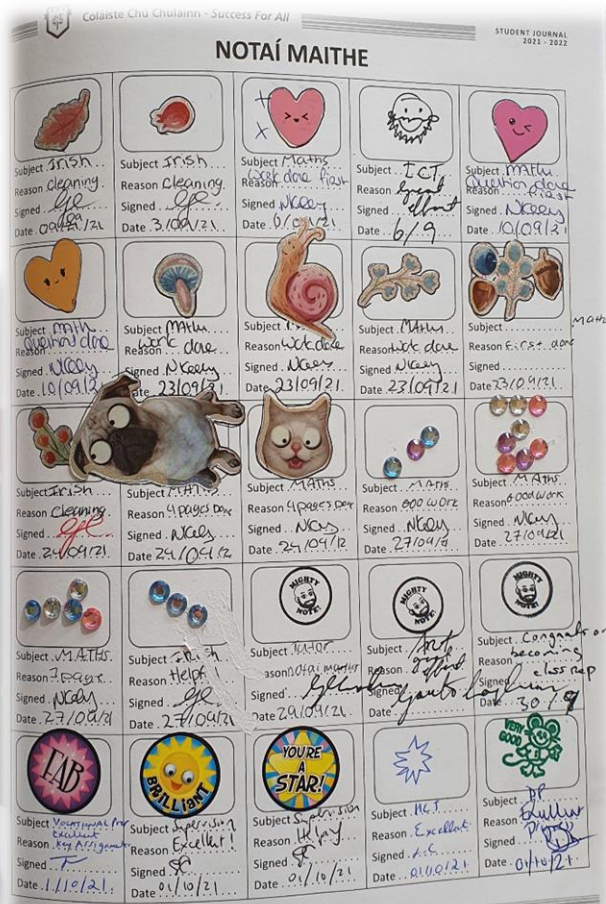 Coláiste Chu Chulainn - Success For All
STUDENT JOURNAL
2021 - 2022
NOTAÍ MAITHE
Subject Irish
Reason cleaning
Signed
Date 09/09/21
Subject Irish
Reason cleaning
Signed
Date
Subject Maths
Work done first
Reason
Signed NKeely
Date
Subject ICT
Reason Great
effort
Signed
Date 6/9
Subject Maths
question done
Reason first
Signed NKeely
Date 10/09/21
Subject Math
question done
Reason
Signed NKeely
Date 10/09/2
Subject Maths
Reason work done
Signed NKeely
Date 23/09/21
Subject
Reason work done
Signed NKeely
Date 23/09/21
Subject Maths
Reason work done
Signed NKeely
Date 23/09/21
Subject Maths
Reason First done
Signed
Date 23/09/21
Subject Irish
Reason cleaning
Signed
Date 24/09/21
Subject Maths
Reason 4 pages Done
Signed NKeely
Date 24/09/21
Subject Maths
Reason 4 pages Done
Signed NKeely
Date 24/09/2
Subject Maths
Reason Good work
Signed NKeely
Date 27/09/2
Subject Maths
Reason Good work
Signed NKeely
Date 27/09/21
Subject MATHS
Reason 7 pages
Signed NKeely
Date 27/09/21
Subject Irish
Reason Helpful
Signed
Date 27/09/21
MIGHTY
NOTE!
Subject Tutor
Reason notai maithe
Signed
Date 29/09/21
MIGHTY
NOTE!
Subject Art
Reason
effort
Signed
Date
MIGHTY
NOTE!
Subject Congrats on
Reason becoming
class rep
Signed
Date 30/9
FAB
Subject Vocational Prep
Excellent
Reason Key Assignment
Signed
Date 1/10/21
BRILLIANT
Subject Supervision
Reason Excellent!
Signed SC
Date 01/10/21
YOU'RE
A
STAR!
Subject Supervision
Reason
Signed SC
Date 01/10/21
Subject
Reason Excellent
Signed
Date 01/10/21
VERY
GOOD
Subject
Reason Excellent
Signed
Date 01/10/21